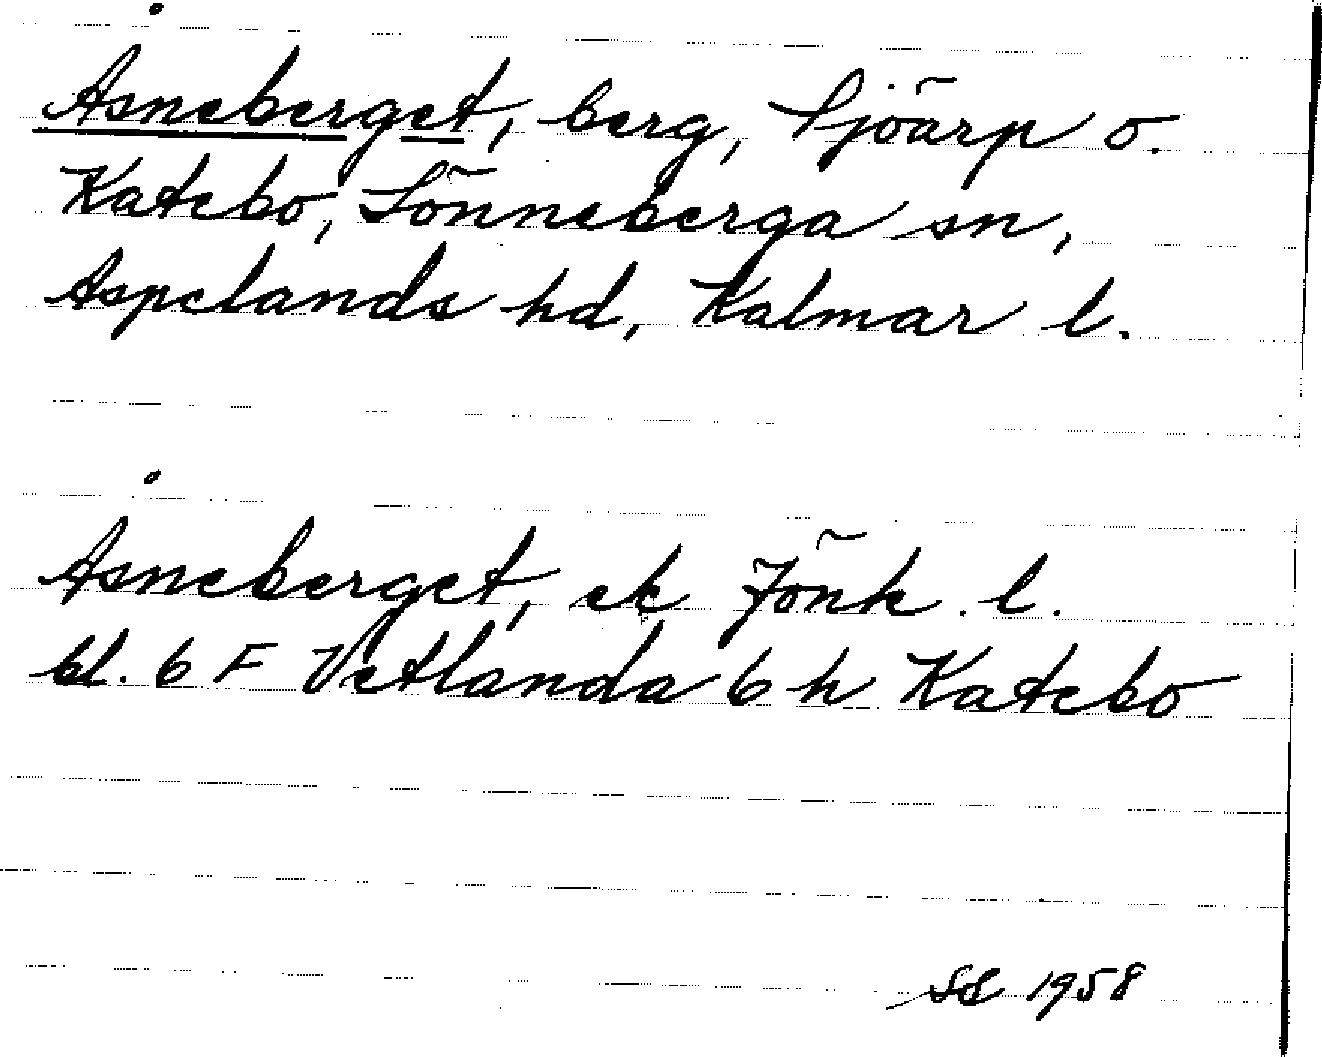 Åsneberget, berg, Sjöarp o.
Katebo, Lönneberga sn,
Aspelands hd, Kalmar l.
Åsneberget, ek Jönk. l.
bl. 6 F Vetlanda 6 h Katebo
1958